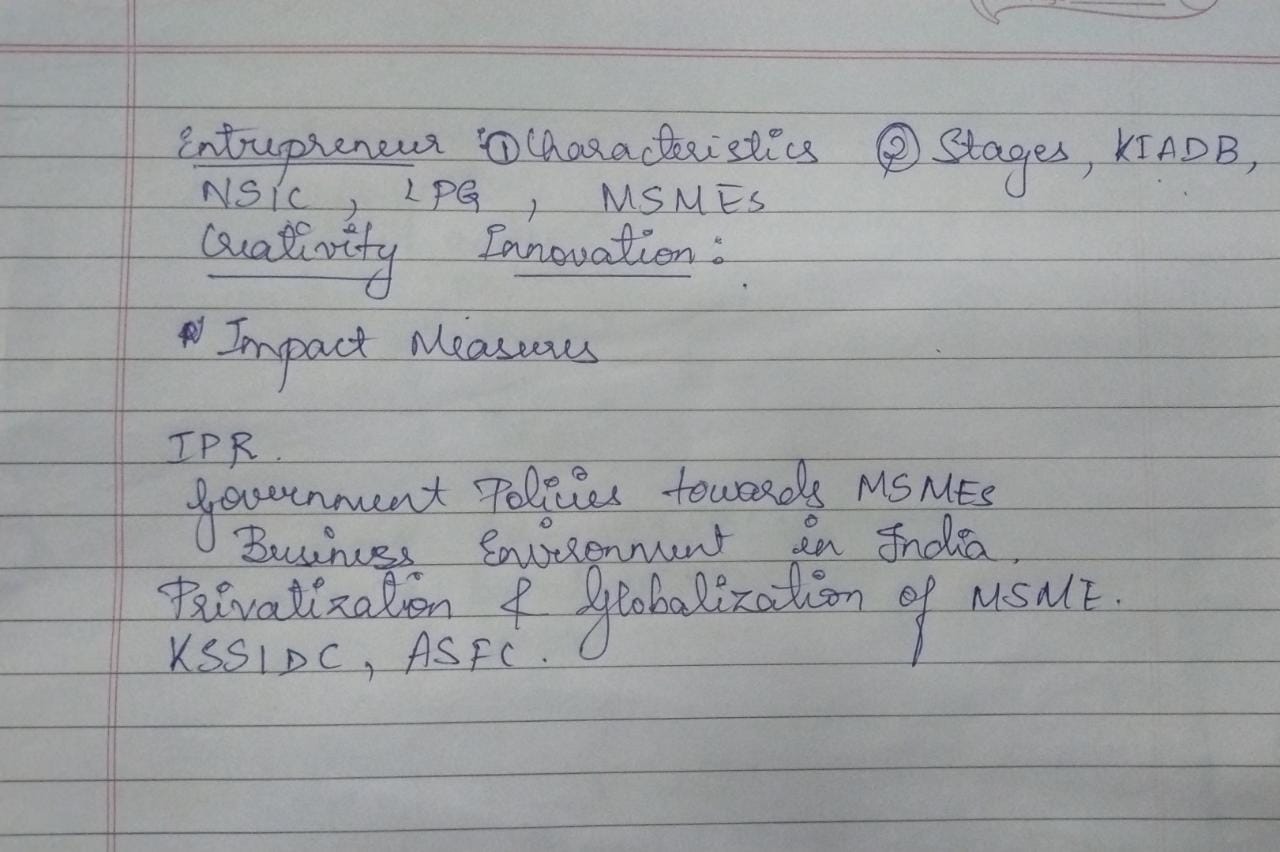 Entrepreneur ① Characteristics ② Stages, KIADB,
NSIC, LPG, MSMEs
Creativity Innovation:
Impact Measures
IPR.
Government Policies towards MSMEs
Business Environment in India.
Privatization & Globalization of MSME.
KSSIDC, ASFC.